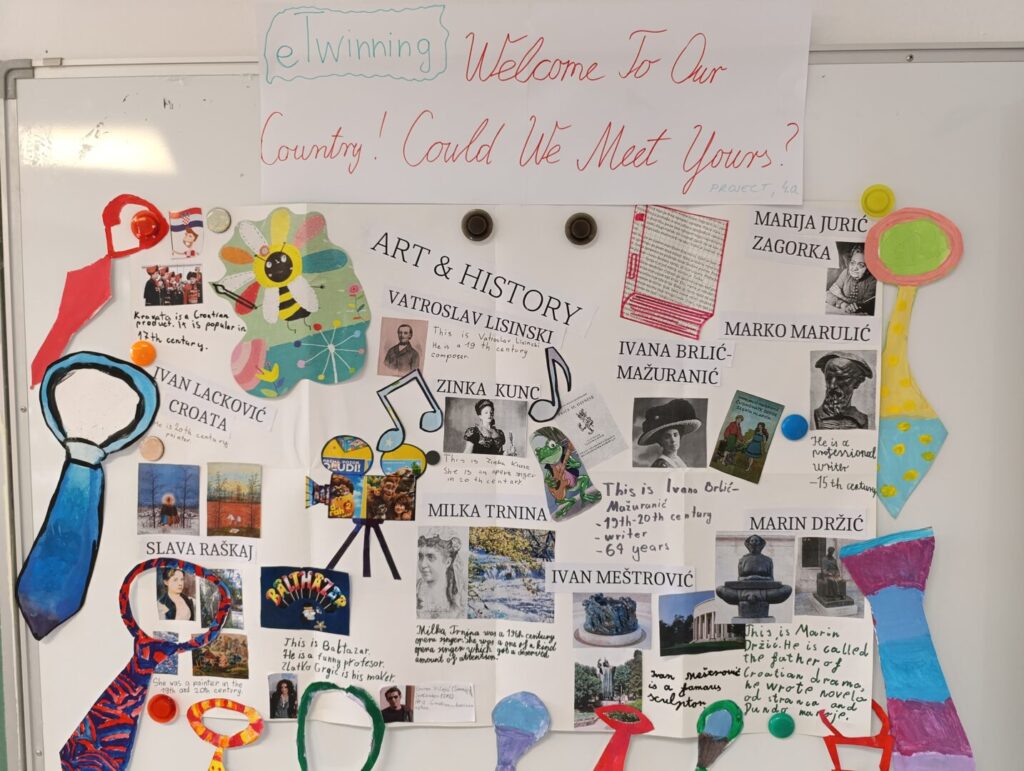 eTwinning
Welcome To Our
Country! Could We Meet Yours?
PROJECT, 4.a
ART & HISTORY
Kravata is a Croatian
product. It is popular in
17th century.
IVAN LACKOVIĆ
CROATA
He is 20th century
painter.
SLAVA RAŠKAJ
She was a painter in the
19th and 20th century.
VATROSLAV LISINSKI
This is Vatroslav Lisinski
He is a 19 th century
composer.
ZINKA KUNC
This is Zinka Kunc
She is an opera singer
in 20 th century
MILKA TRNINA
Milka Trnina was a 19th century
opera singer. she was a one of a kind
opera singer which got a deserved
amount of attention.
BALTHAZER
This is Baltazar.
He is a funny profesor.
Zlatko Grgić is his maker.
IVANA BRLIĆ-
MAŽURANIĆ
This is Ivana Brlić-
Mažuranić
-19th-20th century
-writer
-64 years
IVAN MEŠTROVIĆ
Ivan meštrović
is a famous
sculptor
MARIJA JURIĆ
ZAGORKA
MARKO MARULIĆ
He is a
professional
writer
-15th century
MARIN DRŽIĆ
This is Marin
Držić. He is called
the father of
Croatian drama,
he wrote novela
od stranca and
Dundo maroje.